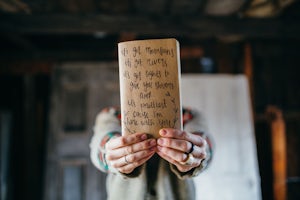 it's got mountains
it's got rivers
it's got sights to
give you shivers
and
it's
'cause i'm
here with you!